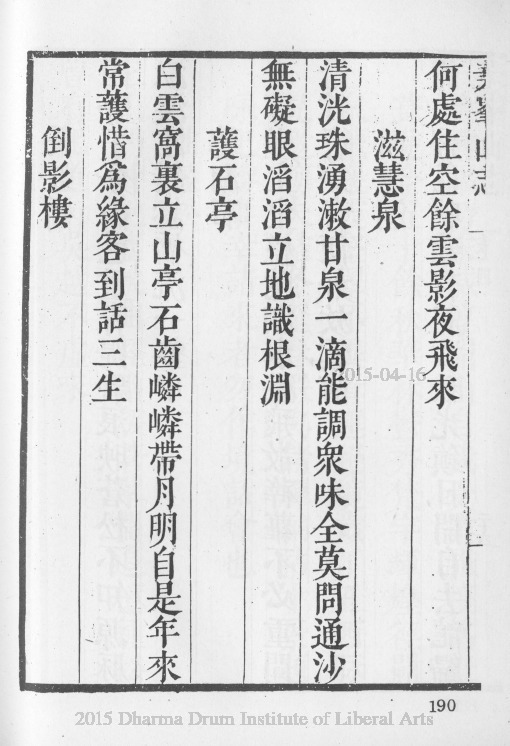 何處住空餘雲影夜飛來
滋慧泉
清洸珠湧漱甘泉一滴能調衆味全莫問通沙
無礙眼滔滔立地識根淵
護石亭
白雲窩裏立山亭石齒嶙嶙帶月明自是年來
常護惜爲緣客到話三生
倒影樓
2015-04-16
190
2015 Dharma Drum Institute of Liberal Arts